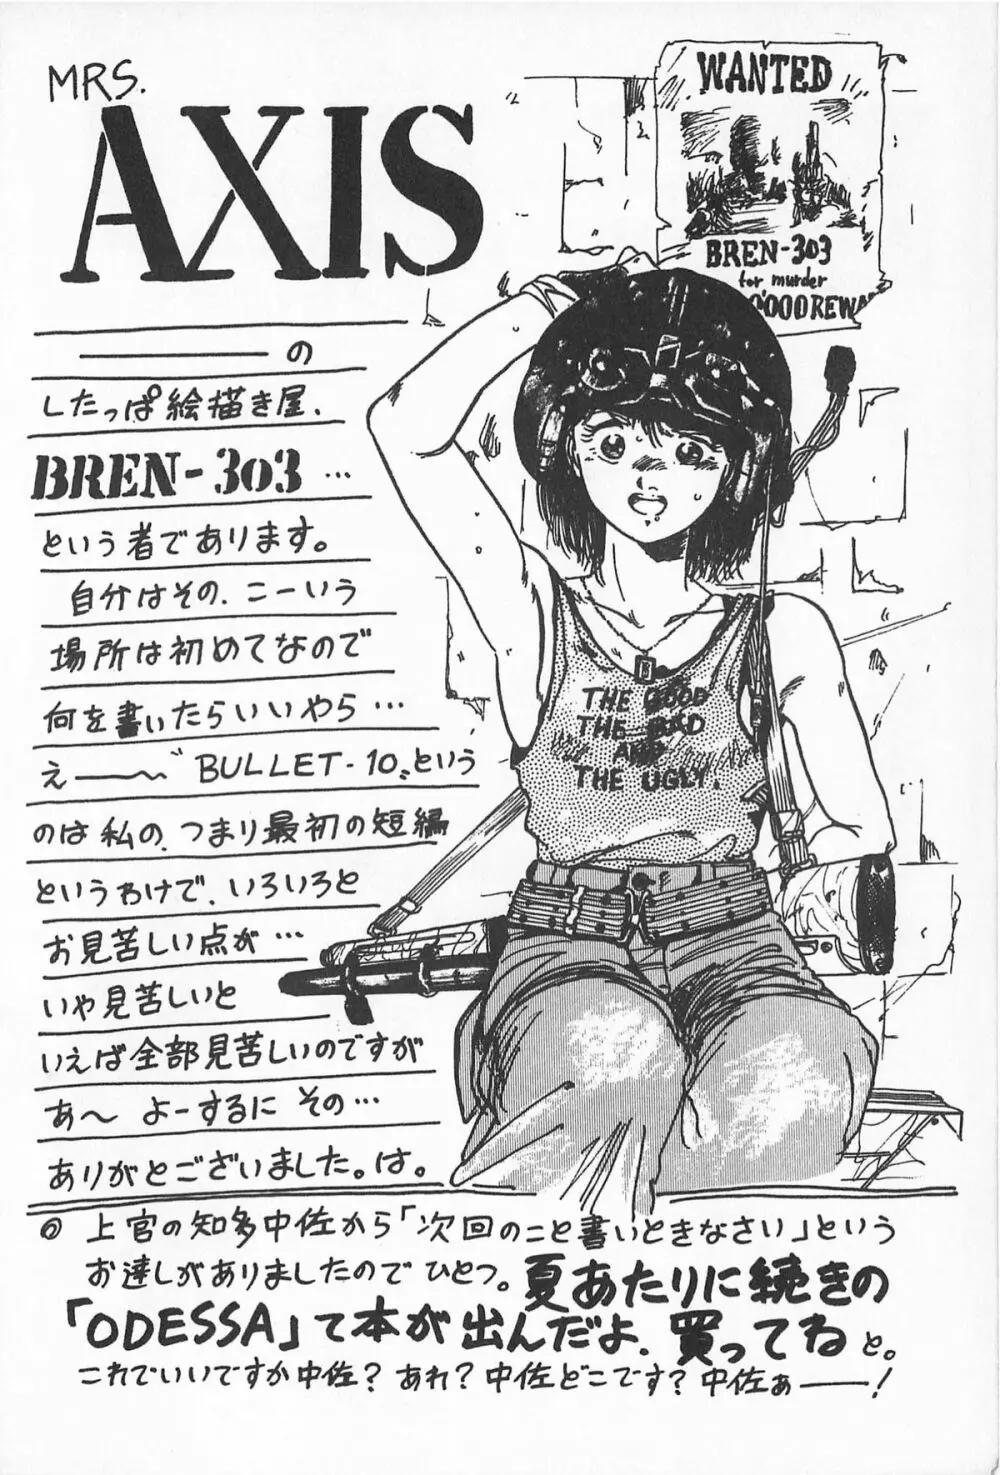 MRS.
AXIS
WANTED
BREN-303
for murder
000REWA
の
したっぱ絵描き屋、
BREN-303…
という者であります。
自分はその、こーいう
場所は初めてなので
何を書いたらいいやら…
え——〜"BULLET-10"という
のは私の、つまり最初の短編
というわけで、いろいろと
お見苦しい点が…
いや見苦しいと
いえば全部見苦しいのですが
あ〜 よーするに その…
ありがとございました。は。
THE GOOD
THE BAD
AND
THE UGLY.
◎ 上官の知多中佐から「次回のこと書いときなさい」という
お達しがありましたのでひとつ。夏あたりに続きの
「ODESSA」て本が出んだよ、買ってねと。
これでいいですか中佐？あれ？中佐どこです？中佐ぁ——！